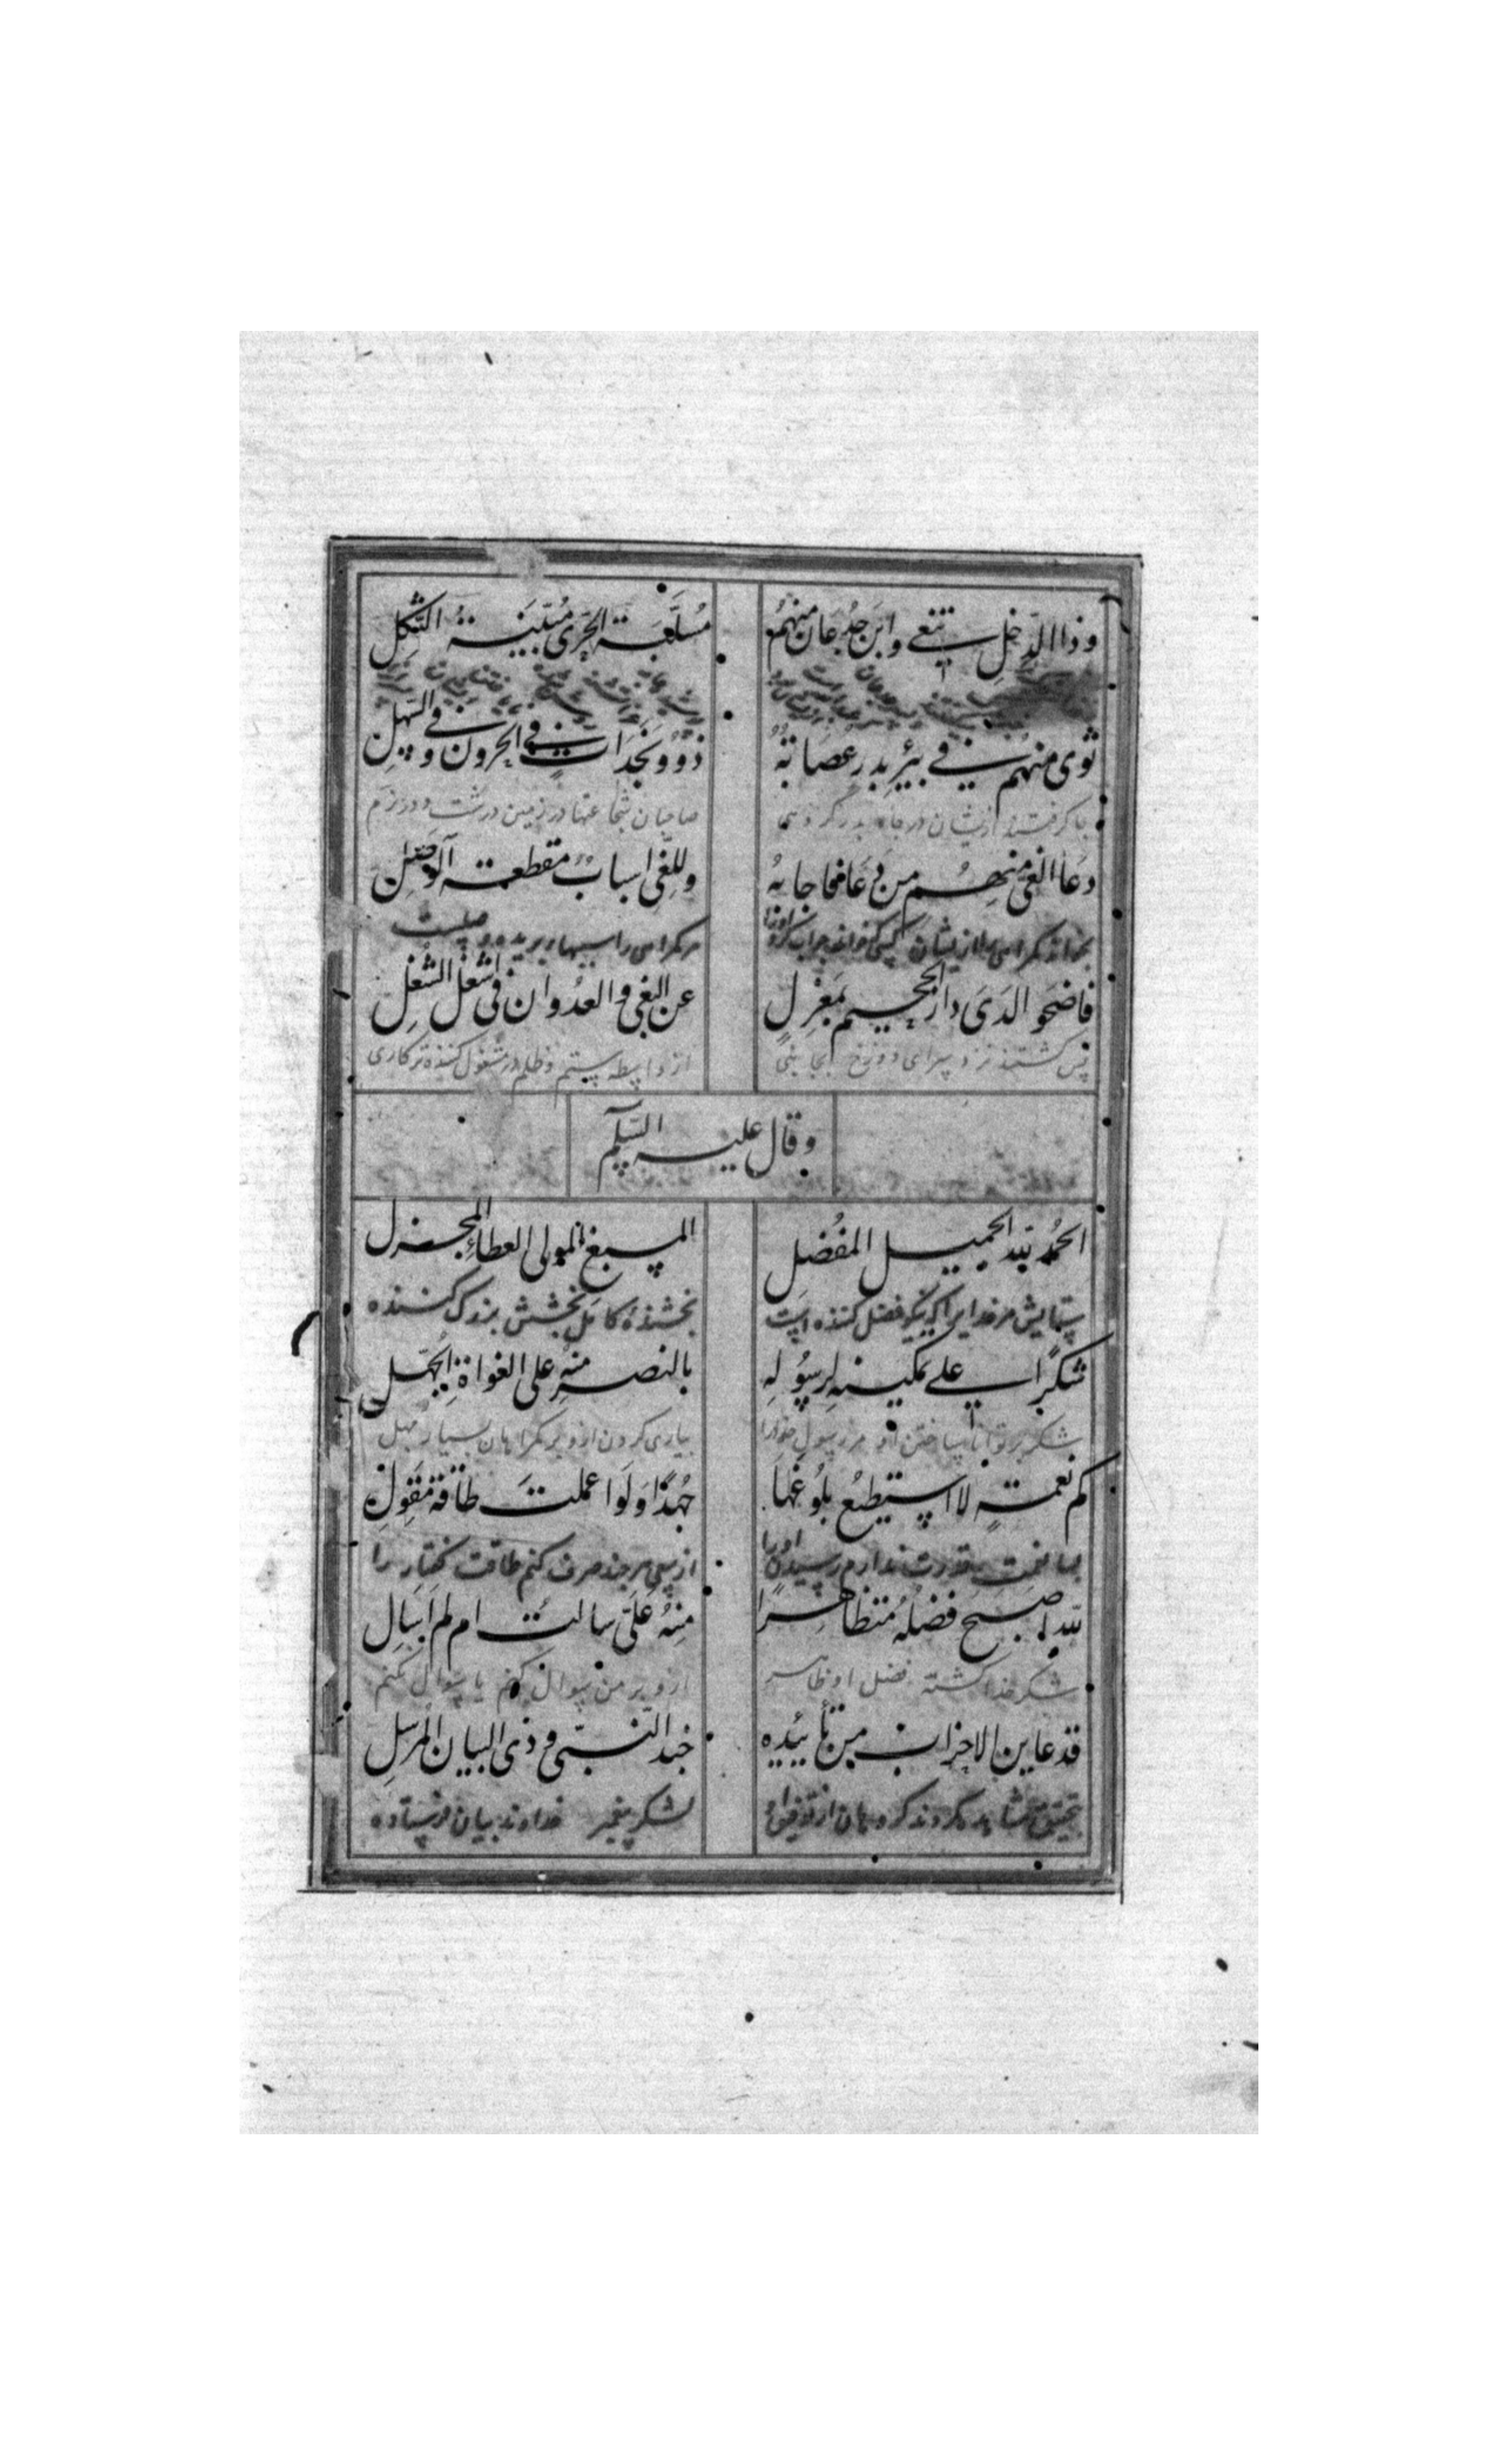 وذا الذحل تنعی وابن جدعان منهم
مسلبة الحری مبینة الثکل
ثوی منهم فی بئر بدر عصابة
ذوو نجدات فی الحزون وفی السهل
صاحبان شجاعتها در زمین درشت و در نرم
دعا الغی منهم من دعا فاجابه
وللغی اسباب مقطعة الوصل
مر گمراهی را سببها بریده وصلست
فاضحوا لدی دار الجحیم بمعزل
عن البغی والعدوان فی اشغل الشغل
پس گشتند نزد سرای دوزخ بجانبی
از واسطه ستم و ظلم در مشغول کننده تر کاری
وقال علیه السلم
الحمد لله الجمیل المفضل
المسبغ المولی العطاء المجزل
ستایش مر خدایرا که نیکو فضل کننده است
بخشنده کامل بخشش بزرک کننده
شکرا علی تمکینه لرسوله
بالنصر منه علی الغواة الجهل
شکر بر توانا ساختن او مر رسول خود را
بیاری کردن ازو بر گمراهان بسیار جهل
کم نعمة لا استطیع بلوغها
جهدا ولو اعملت طاقة مقول
بسا نعمت قدرت ندارم رسیدن او را
از سعی هر چند صرف کنم طاقت گفتار را
لله اصبح فضله متظاهرا
منه علی سالت ام لم اسال
شکر خدا گشته فضل او ظاهر
ازو بر من سوال کنم یا سوال نکنم
قد عاین الاحزاب من تأییده
جند النبی وذی البیان المرسل
بتحقیق مشاهده کردند گروهان از توفیق او
لشکر پیغمبر خداوند بیان فرستاده